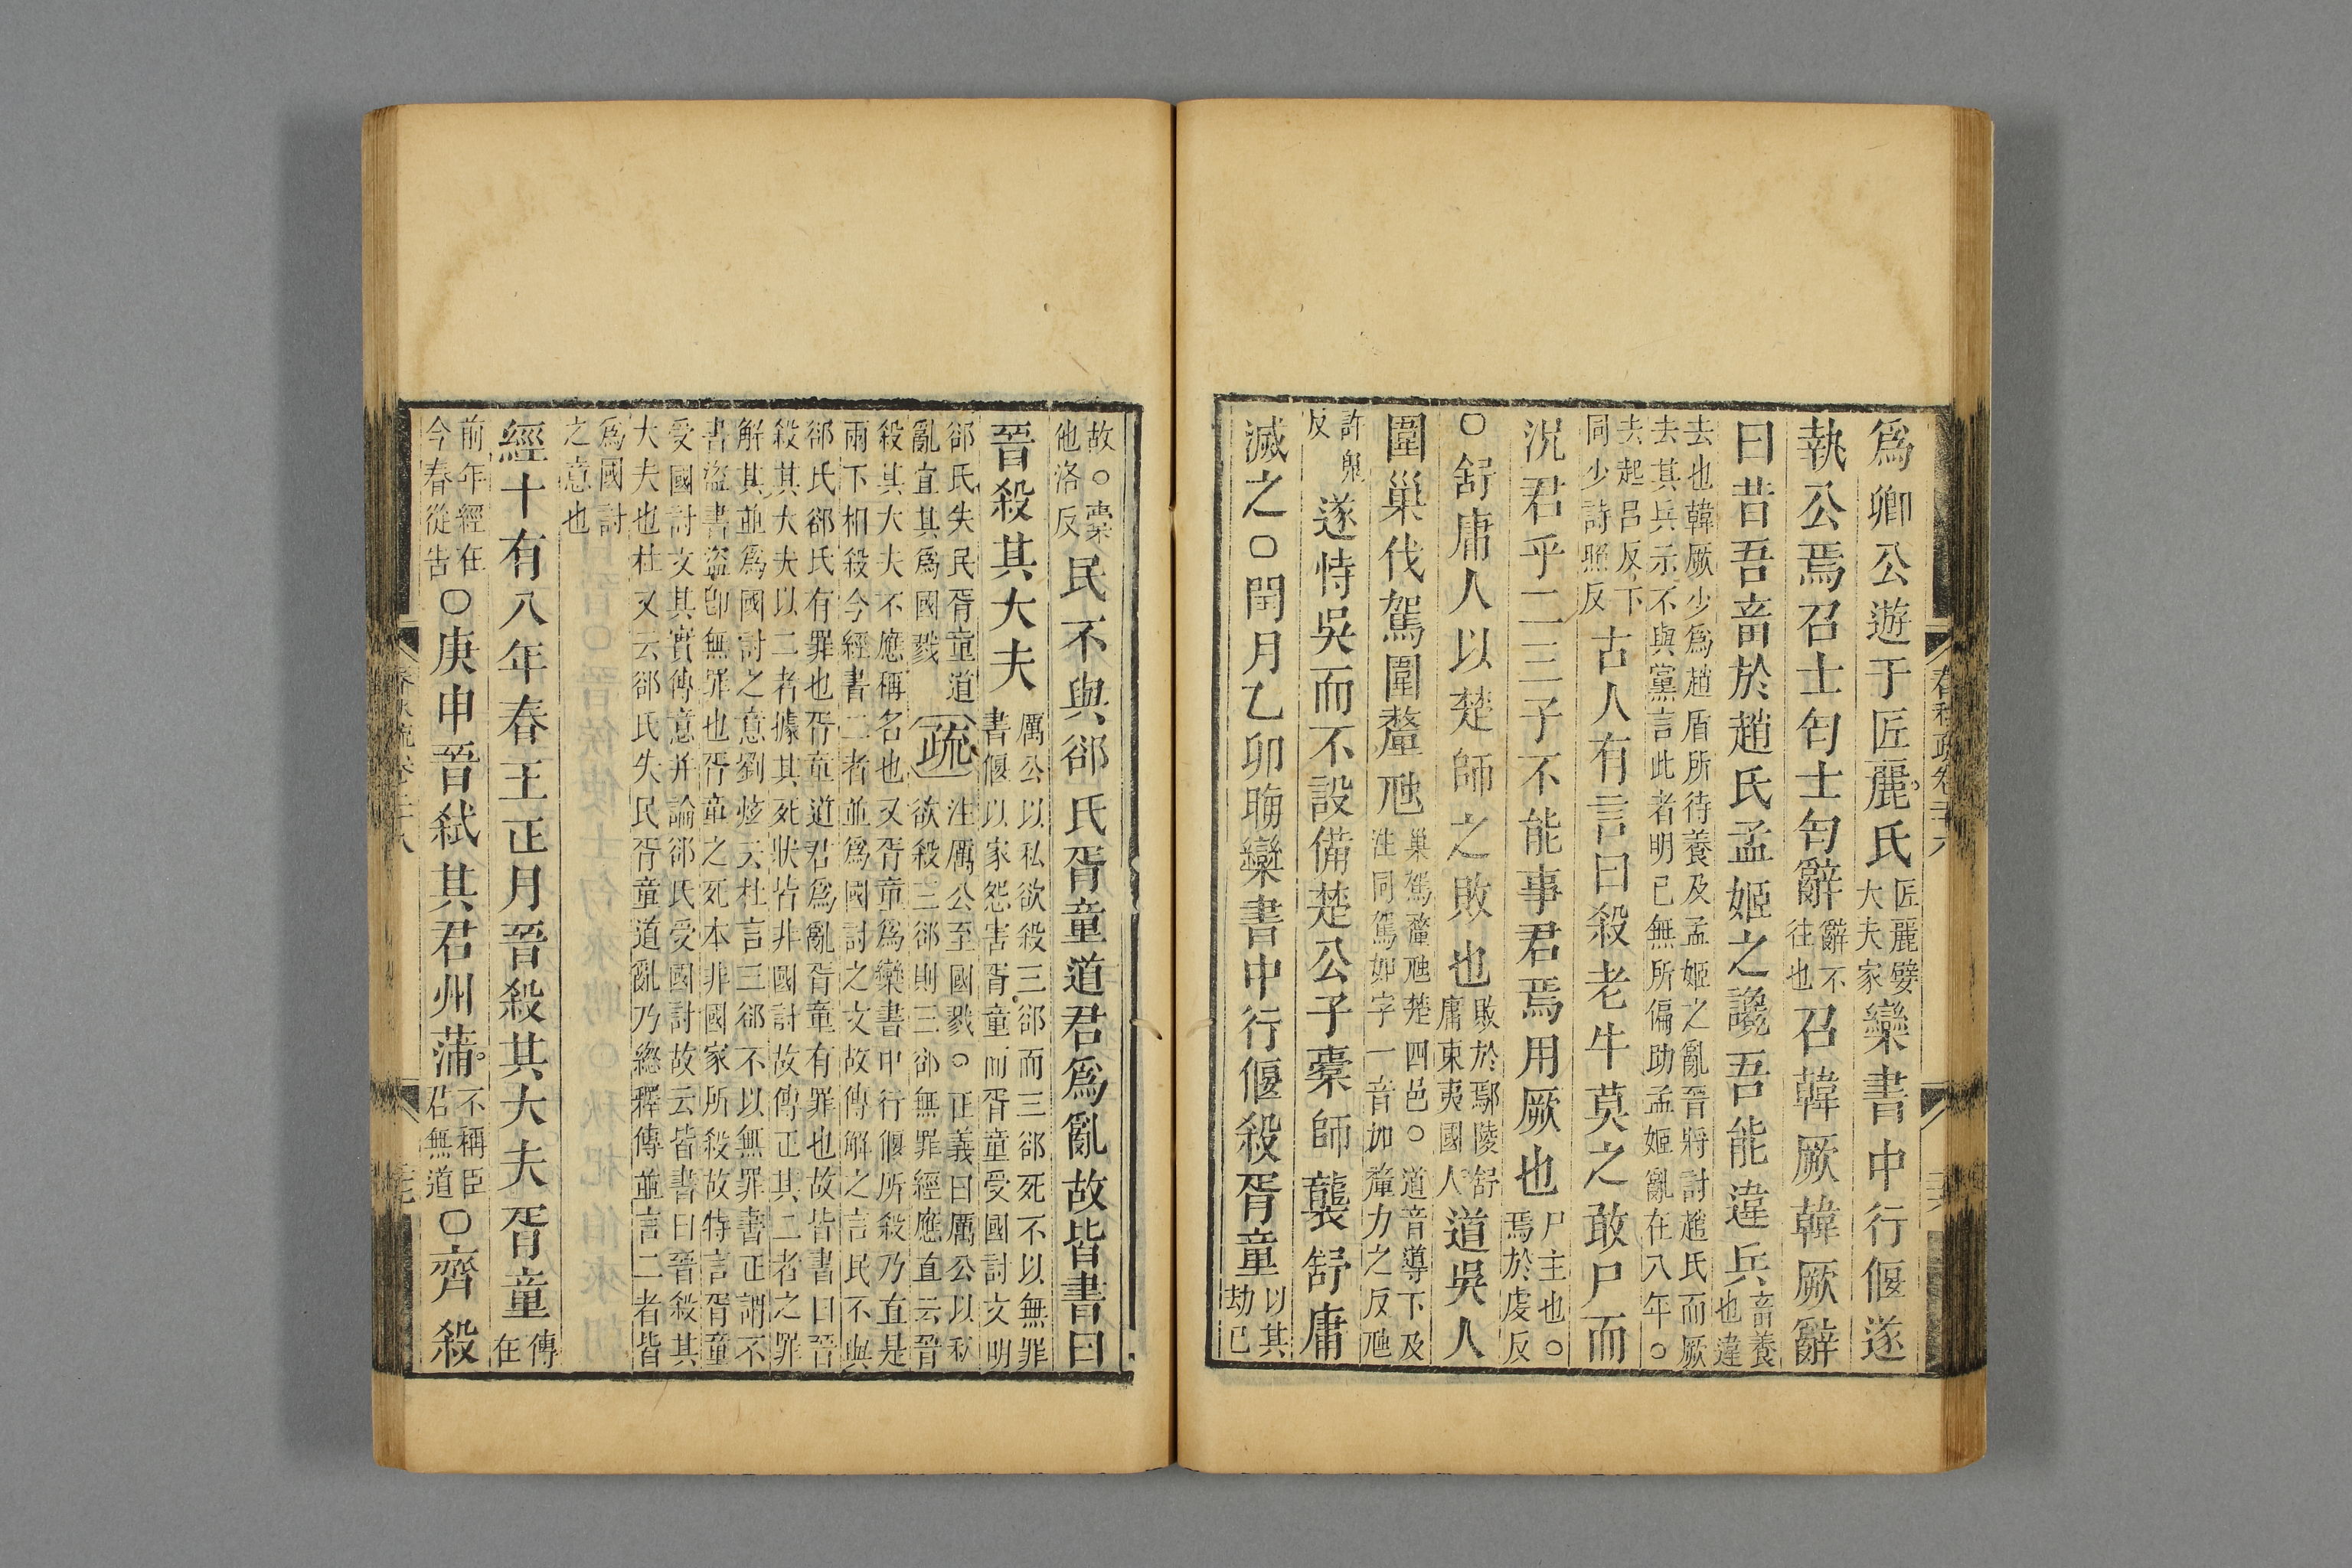 爲卿公遊于匠麗氏匠麗嬖大夫家欒書中行偃遂
執公焉召士匄士匄辭辭不往也召韓厥韓厥辭
曰昔吾畜於趙氏孟姬之讒吾能違兵畜養也違
去也韓厥少爲趙盾所待養及孟姬之亂晉將討趙氏而厥
去其兵示不與黨言此者明己無所偏助孟姬亂在八年○
去起呂反下同少詩照反古人有言曰殺老牛莫之敢尸而
況君乎二三子不能事君焉用厥也尸主也○焉於虔反
○舒庸人以楚師之敗也敗於鄢陵舒庸東夷國人道吳人
圍巢伐駕圍釐虺巢駕釐虺楚四邑○道音導下及
注同駕如字一音加釐力之反虺
許鬼反遂恃吳而不設備楚公子橐師襲舒庸
滅之○閏月乙卯晦欒書中行偃殺胥童以其劫己
故○橐他洛反民不與郤氏胥童道君爲亂故皆書曰
晉殺其大夫厲公以私欲殺三郤而三郤死不以無罪
書偃以家怨害胥童而胥童受國討文明
郤氏失民胥童道亂宜其爲國戮疏注厲公至國戮○正義曰厲公以私
欲殺三郤則三郤無罪經應直云晉
殺其大夫不應稱名也又胥童爲欒書中行偃所殺乃直是
兩下相殺今經書二者並爲國討之文故傳解之言民不與
郤氏郤氏有罪也胥童道君爲亂胥童有罪也故皆書曰晉
殺其大夫以二者據其死狀皆非國討故傳正其二者之罪
解其並爲國討之意劉炫云杜言三郤不以無罪書正謂不
書盜書盜即無罪也胥童之死本非國家所殺故特言胥童
受國討文其實傳意并論郤氏受國討故云皆書曰晉殺其
大夫也杜又云郤氏失民胥童道亂乃緫釋傳並言二者皆
爲國討
之意也
經十有八年春王正月晉殺其大夫胥童傳在
前年經在今春從告○庚申晉弒其君州蒲不稱臣君無道○齊殺